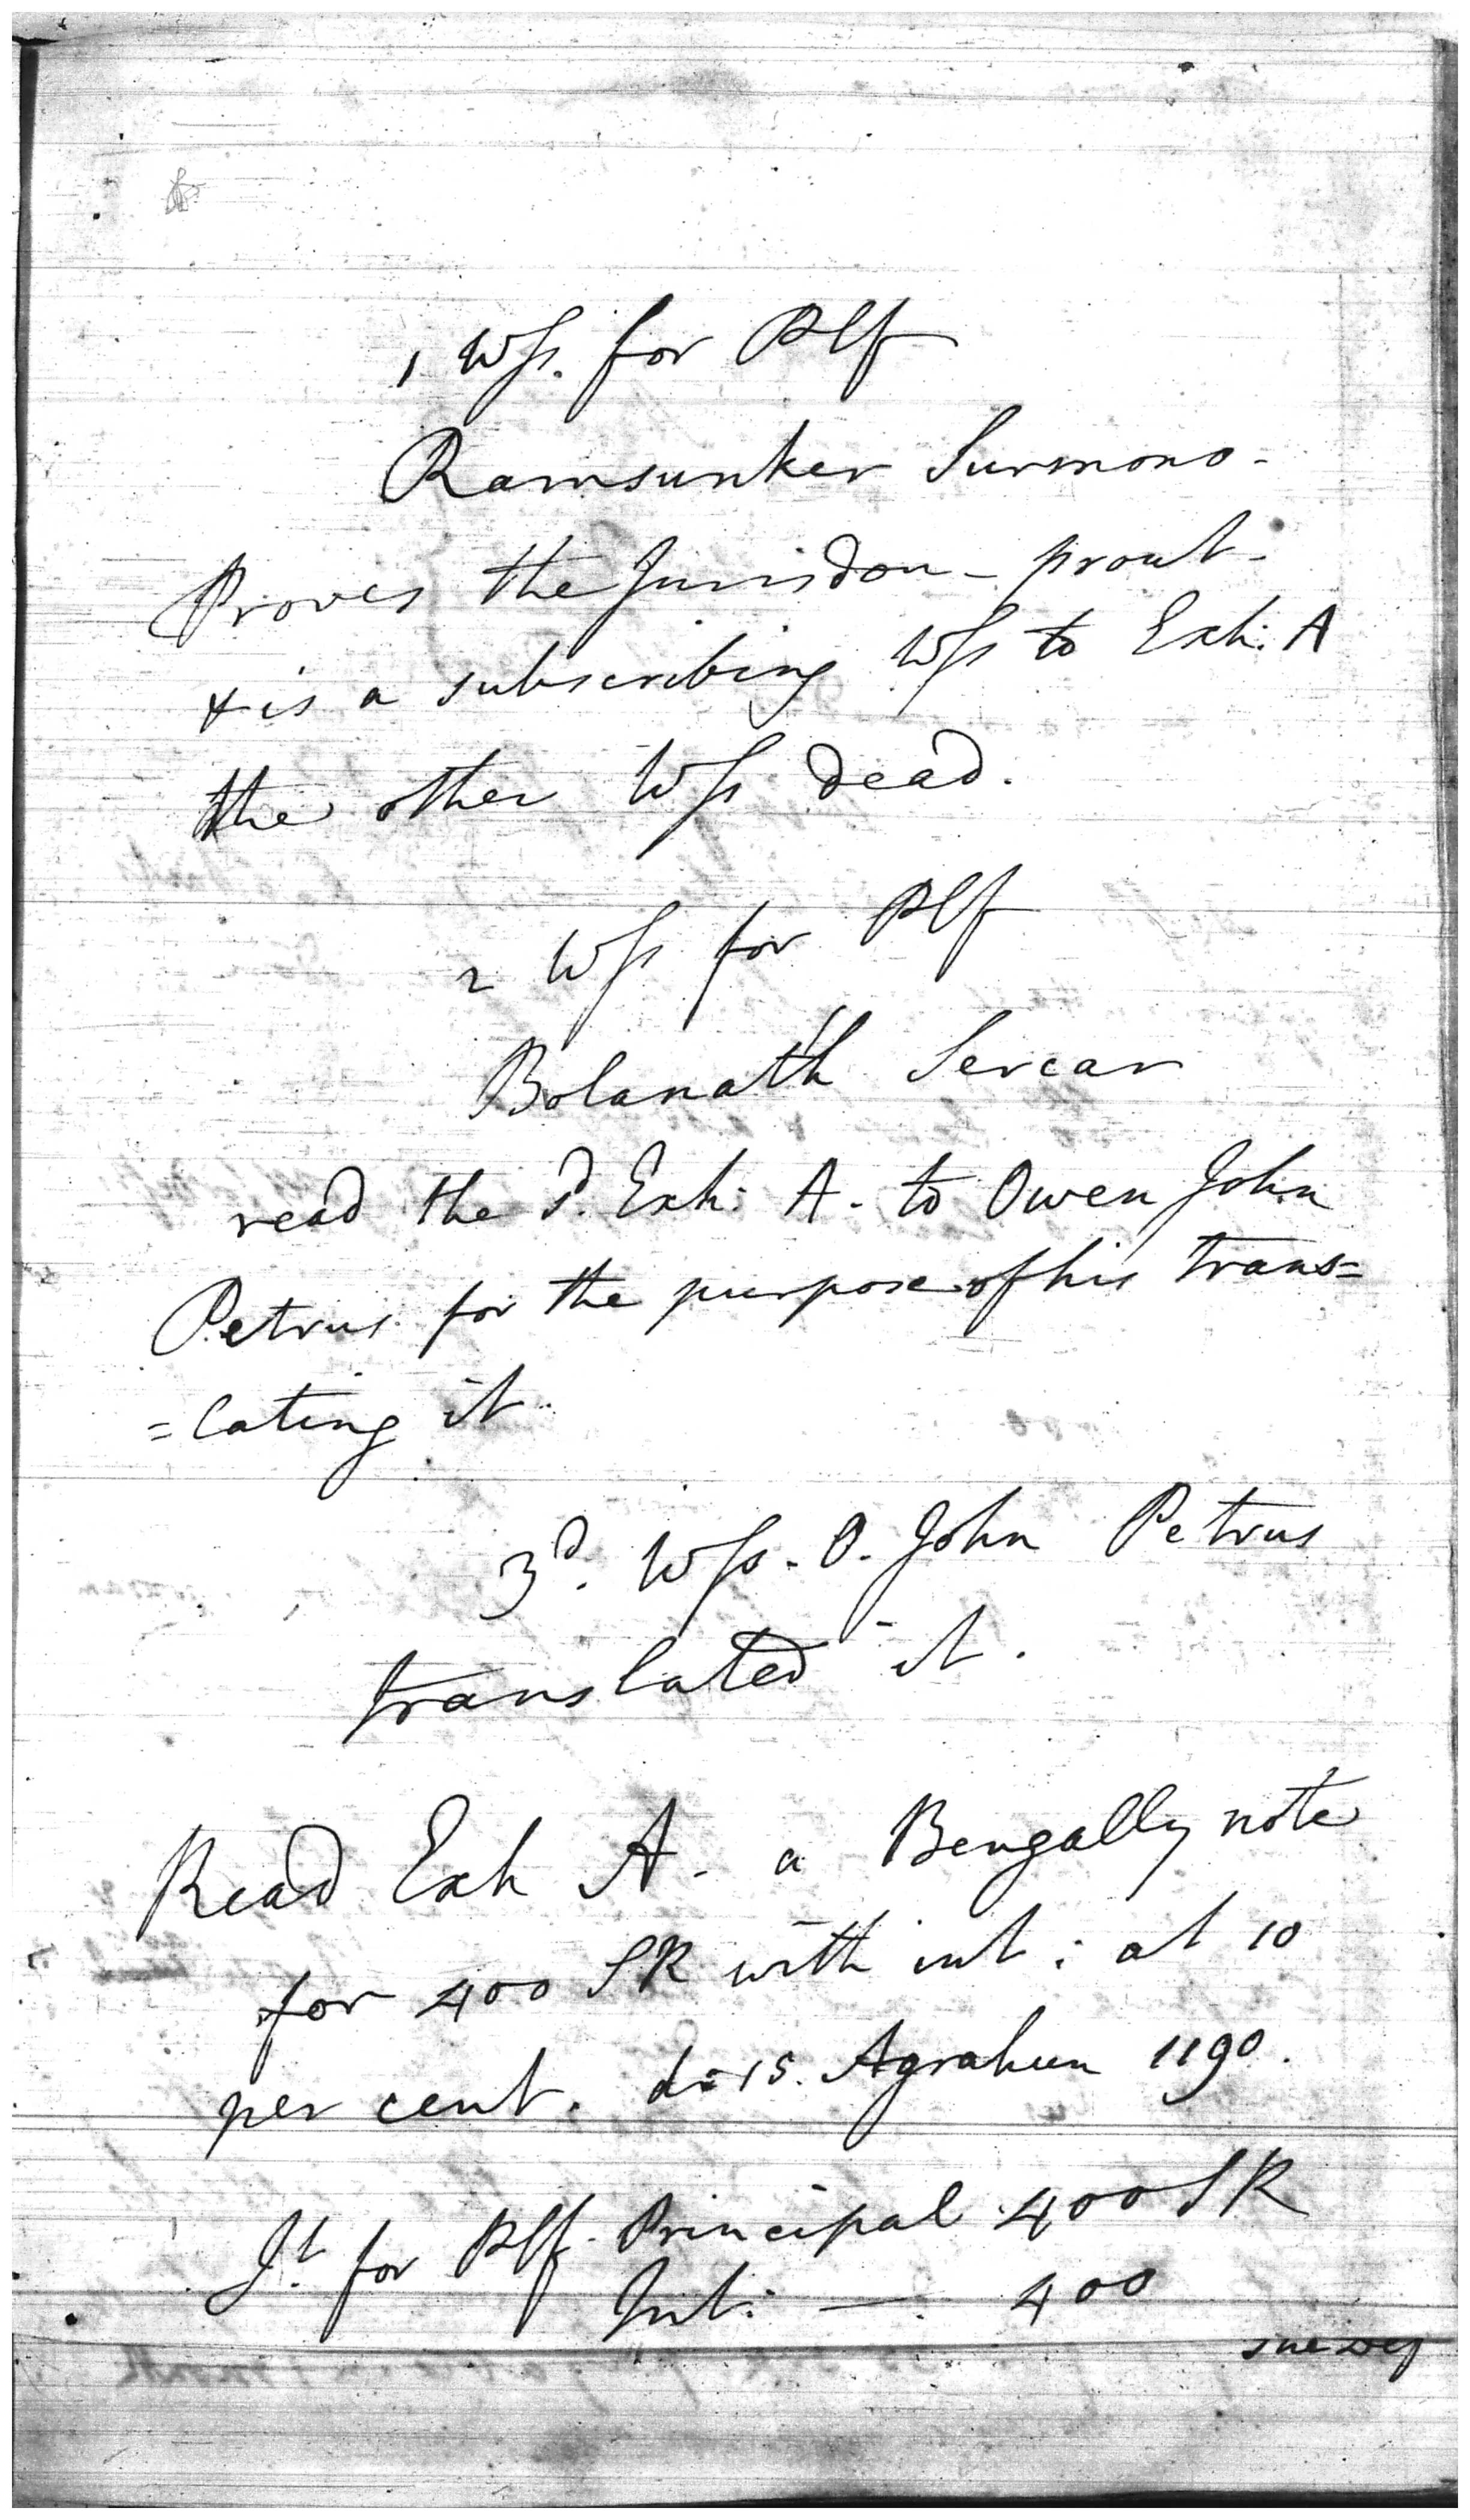 1 Wss. for Plf
Ramsunker Surmono -
Proves the Jurisdon - prout -
& is a subscribing Wss to Exh: A
the other Wss dead.
2 Wss for Plf
Bolanath Sercar
read the sd. Exh: A. to Owen John
Petrus for the purpose of his trans=
=lating it
3d. Wss. O. John Petrus
translated it.
Read Exh A - a Bengally note
for 400 SR with int: at 10
per cent. d: 15. Agrahun 1190.
Jt. for Plf. Principal 400 SR
Int: — 400